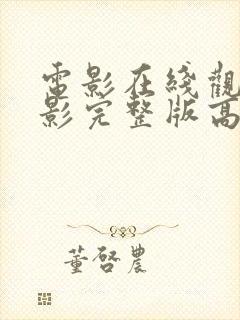 電影在綫觀
影完整版高
董啓農